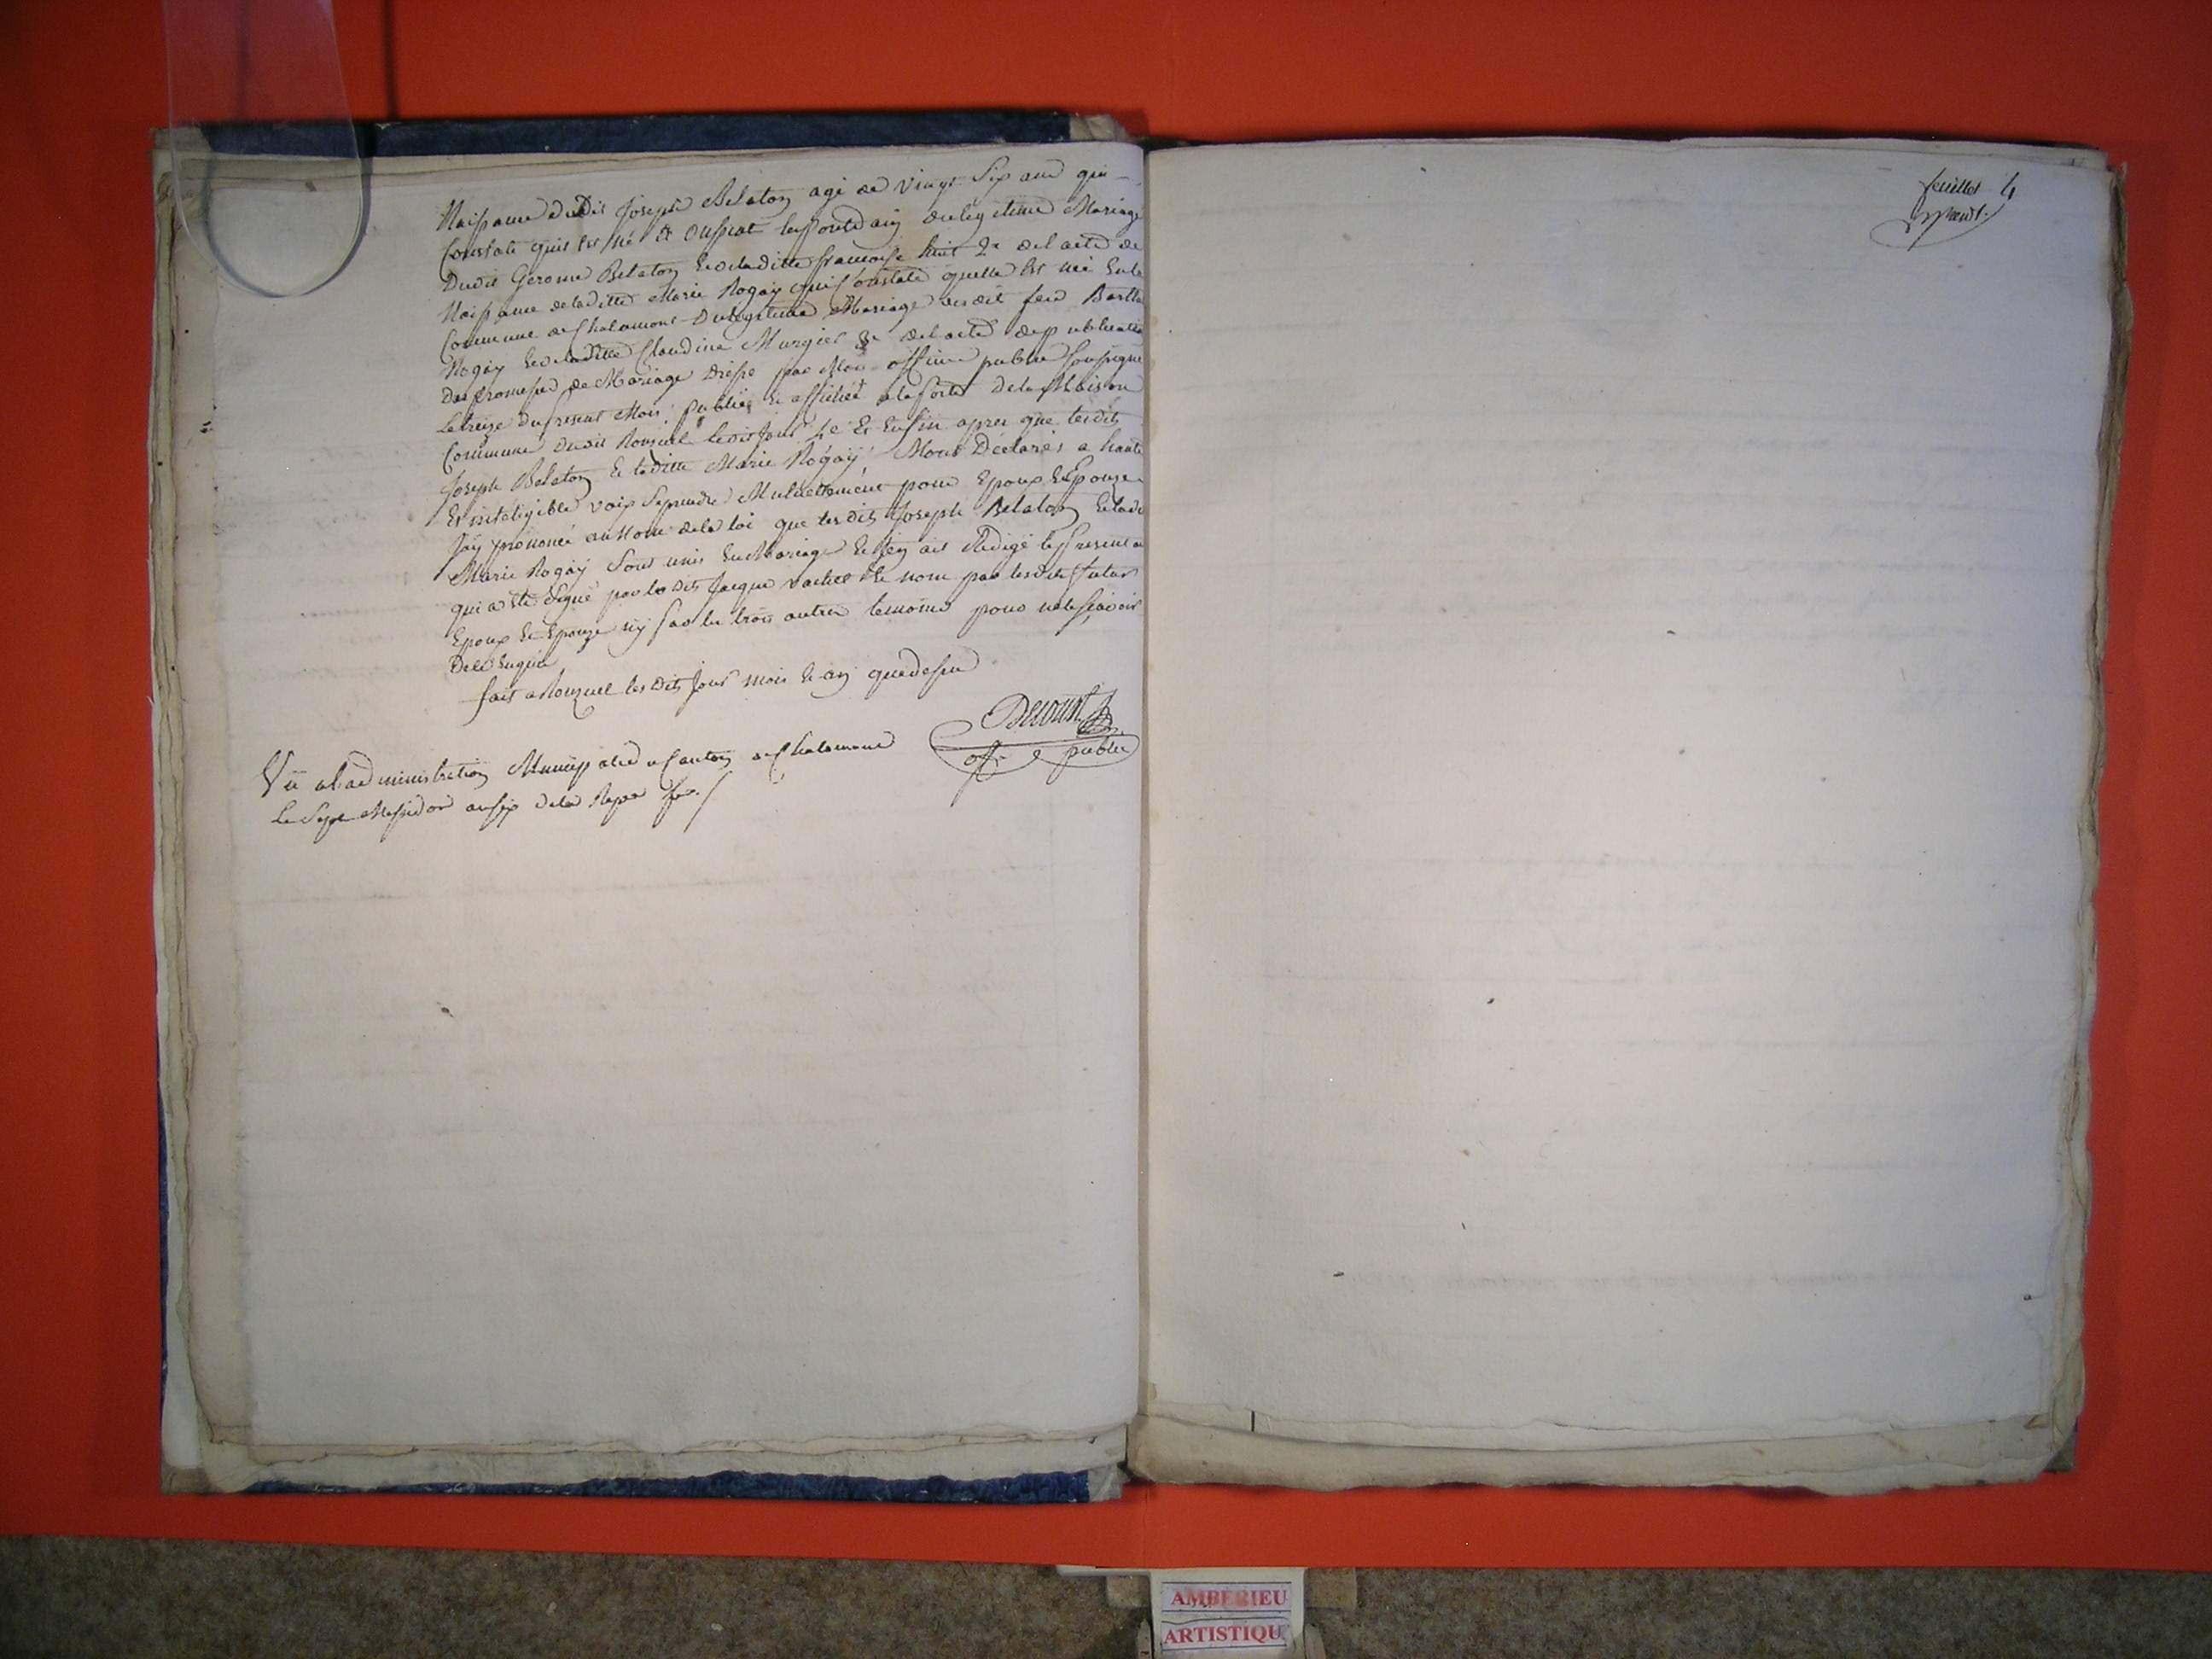 Naissance dudit Joseph Belaton agé de vingt six ans qui
Constate quil est né a le pont dain du legitime Mariage
Dudit Gerome Belaton et de laditte francoise huit 2e de lacte de
Naissance de laditte Marie Rogay qui Constate quelle est née en la
Commune de Chalamont Du legitime Mariage dudit feu
Rogay et de laditte Claudine Murgier 3e de lacte de publication
De promesse de Mariage dressé par Moi officier public soussigné
Le treize du present Mois publiez et affichez a la porte de la Maison
Commune dudit Ronzuel ledit Jour 4e Et Enfin apres que lesdits
Joseph Belaton et laditte Marie Rogaÿ, Mont Déclarés a haute
Et inteligible voix se prendre Mutuellement pour Epoux et Epouze
Jaÿ prononcé au Nom de la loi que lesdits Joseph Belaton et lad
Marie Rogaÿ sont unis en Mariage et Jen ait Redigé le present
qui a été signé par le dit Jacque vacher et non par lesdits futur
Epoux et Epouze nÿ par les trois autres temoins pour ne le sçavoir
De ce Enquis
fait a Ronzuel les dits Jour mois et an que dessus
Decourt
offi public
Vu a ladministration Municipale du Canton de Chalamont
Le Sept Messidor an six de la Repe fr.
feuillet 4
AMBERIEU
ARTISTIQU